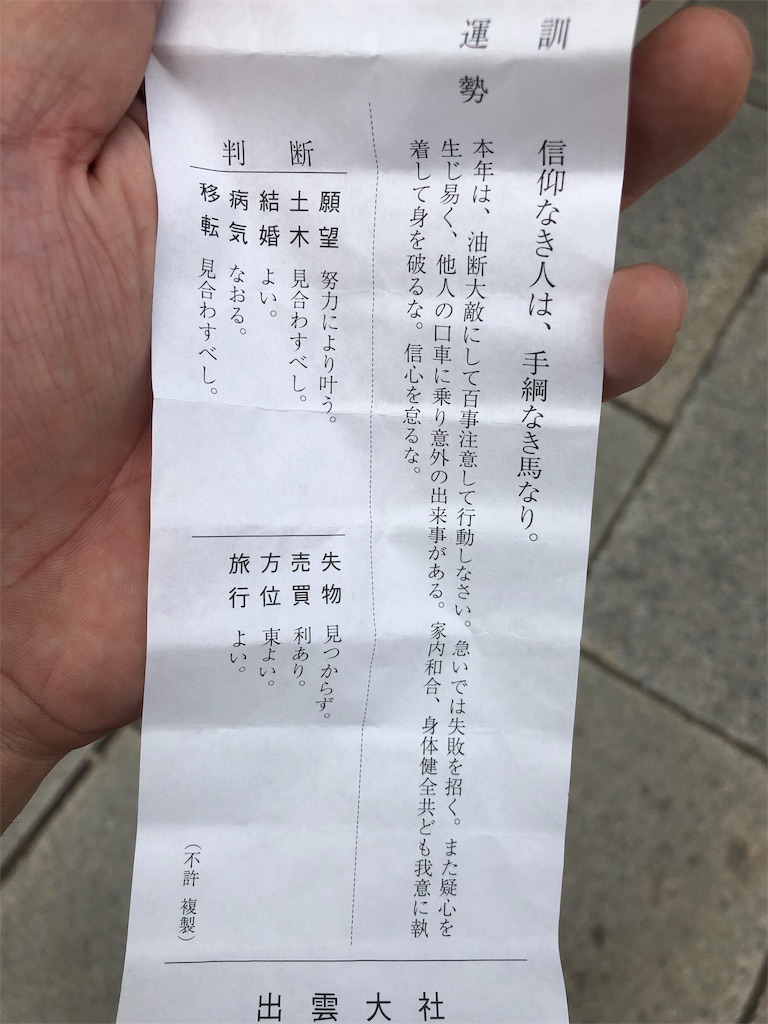 訓
信仰なき人は、手綱なき馬なり。
運勢
本年は、油断大敵にして百事注意して行動しなさい。急いでは失敗を招く。また疑心を
生じ易く、他人の口車に乗り意外の出来事がある。家内和合、身体健全共ども我意に執
着して身を破るな。信心を怠るな。
判断
願望 努力により叶う。
土木 見合わすべし。
結婚 よい。
病気 なおる。
移転 見合わすべし。
失物 見つからず。
売買 利あり。
方位 東よい。
旅行 よい。
(不許 複製)
出雲大社